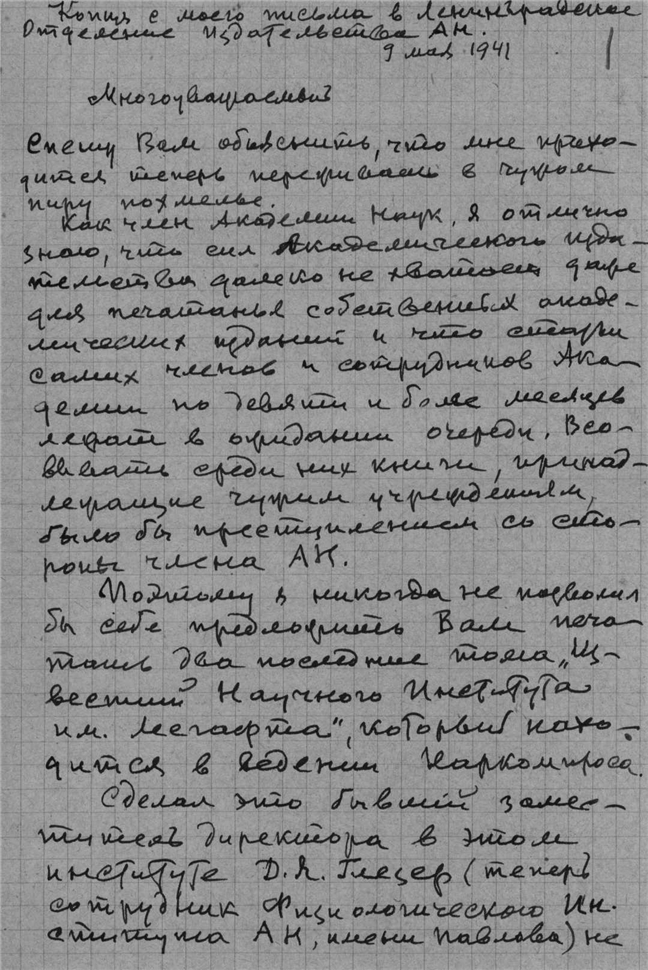 Копия с моего письма в Ленинградское
Отделение Издательства АН.
9 мая 1941
1
Многоуважаемый
Спешу Вам объяснить, что мне прихо-
дится теперь переживать в чужом
пиру похмелье.
Как член Академии Наук, я отлично
знаю, что сил Академического изда-
тельства далеко не хватает даже
для печатанья собственных акаде-
мических изданий и что статьи
самих членов и сотрудников Ака-
демии по девяти и более месяцев
лежат в ожидании очереди. Всо-
вывать среди них книги, принад-
лежащие чужим учреждениям,
было бы преступлением со сто-
роны члена АН.
Поэтому я никогда не позволил
бы себе предложить Вам печа-
тать два последние тома „Из-
вестий Научного Института
им. Лесгафта", который нахо-
дится в ведении Наркомпроса.
Сделал это бывший замес-
титель директора в этом
институте Д.Я. Глезер (теперь
сотрудник Физиологического Ин-
ститута АН, имени Павлова) не